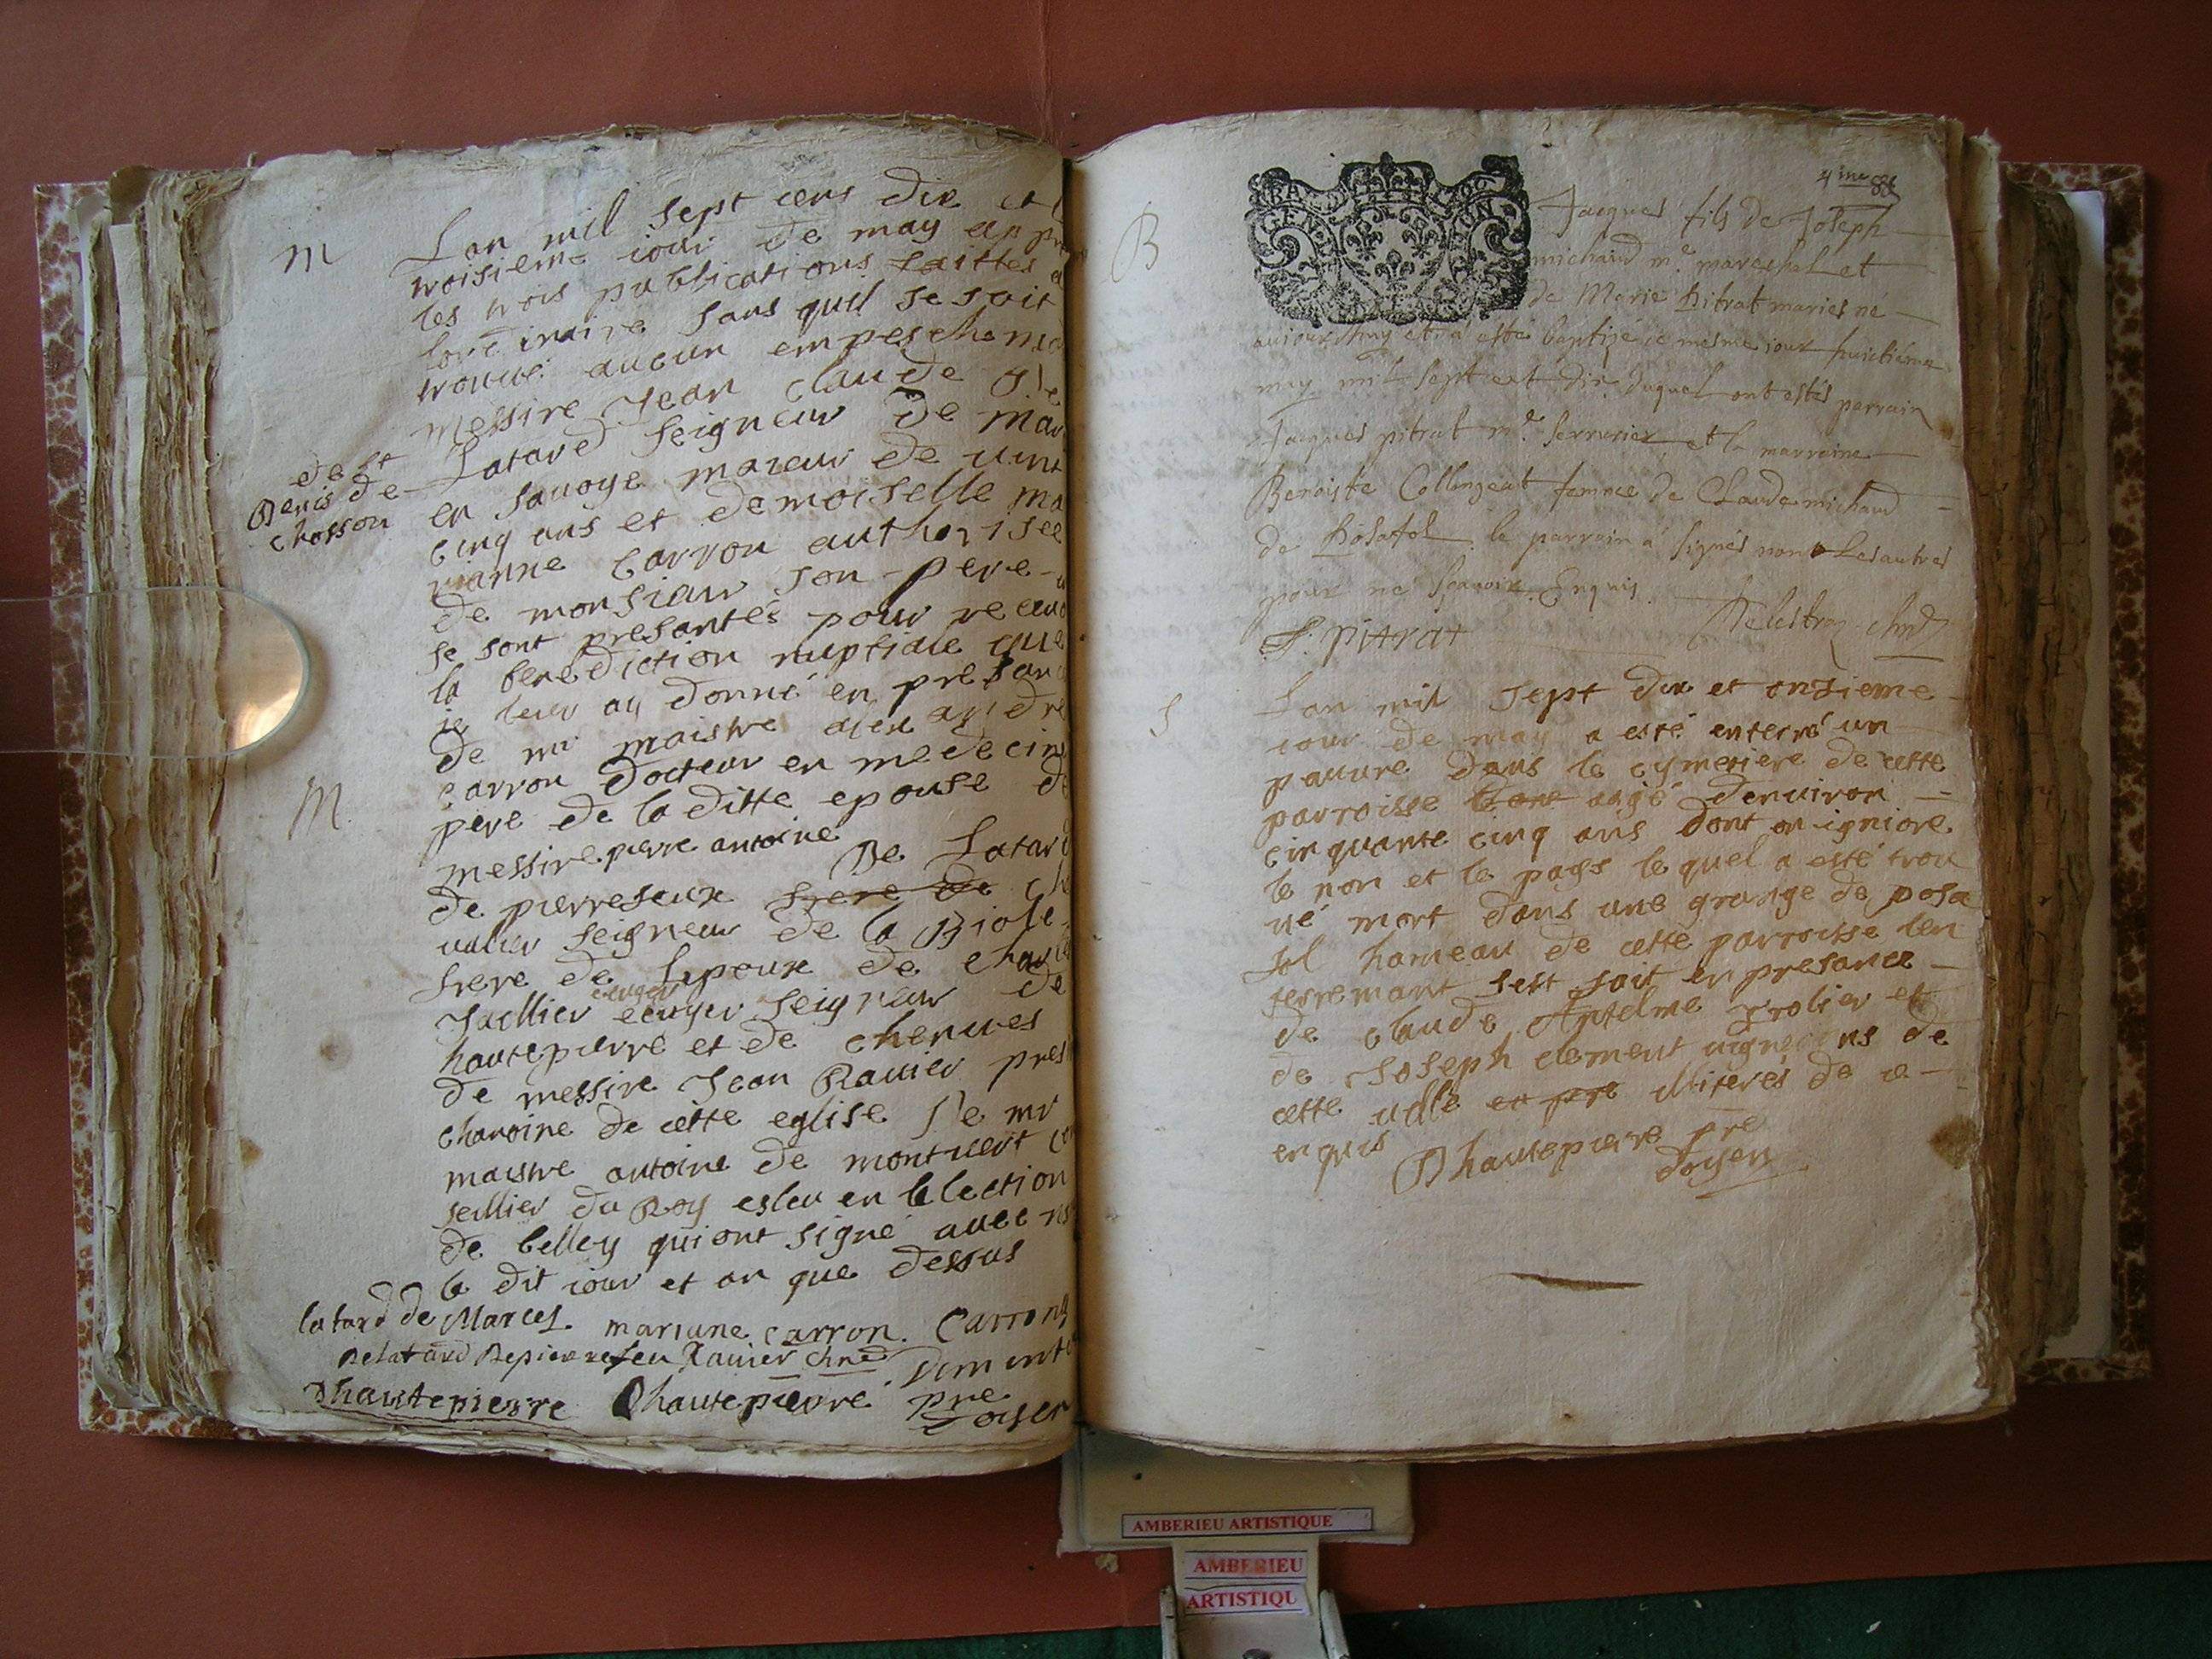 M
Lan mil sept cens dix et
troisieme iour de may
les trois publications faittes
lordinaire sans quil se soit
trouué aucun empeschem
messire Jean claude
de Latard seigneur de mar
de St
Denis de
Chosson
en sauoye maieur de uint
cinq ans et demoiselle ma
rianne Carron authorisee
de monsieur son pere
se sont presantés pour receuo
la benediction nuptiale que
ie leur ay donné en presan
de mr maistre alexandre
Carron Docteur en medecine
pere de la ditte epouse de
M
messire pierre antoine De Latard
de pierrefeux frere de che
ualier seigneur de la Biole
frere de lepoux de charle
Jacllier ecuyer seigneur de
hautepierre et de cherues
de messire Jean Rauier pres
chanoine de cette eglise
maistre antoine de montuert con
seillier du Roy esleu en lelection
de belley qui ont signé auec
le dit iour et an que dessus
latard de Marcel. mariane carron. Carron
Delatard Depierrefeu Rauier chne
Dhautepierre Dhautepierre pre
Doyen
B
Jacques fils de Joseph
michaud me mareschal et
de Marie pitrat mariés né
auiourdhuy et a esté baptizé ce mesme iour huictieme
may mil sept cent dix duquel ont estés parrain
Jacques pitrat me serrurier et la marraine
Benoiste Collongeat femme de Claude michaud
de posafol le parrain a signés non les autres
pour ne sçauoir Enquis
J. Pitrat
S
Lan mil sept dix et onzieme
iour de may a esté enterré un
pauure dans le cymetiere de cette
parroisse agé denuiron
cinquante cinq ans dont on igniore
le non et le pays le quel a esté trou
ué mort dans une grange de posa
fol hameau de cette parroisse len
terremant sest fait en presance
de claude Antelme grolier et
de Joseph clement uignerons de
cette uille et pere illiterés de ce
enquis
Dhautepierre pre
doyen
AMBERIEU ARTISTIQUE
AMBERIEU
ARTISTIQU